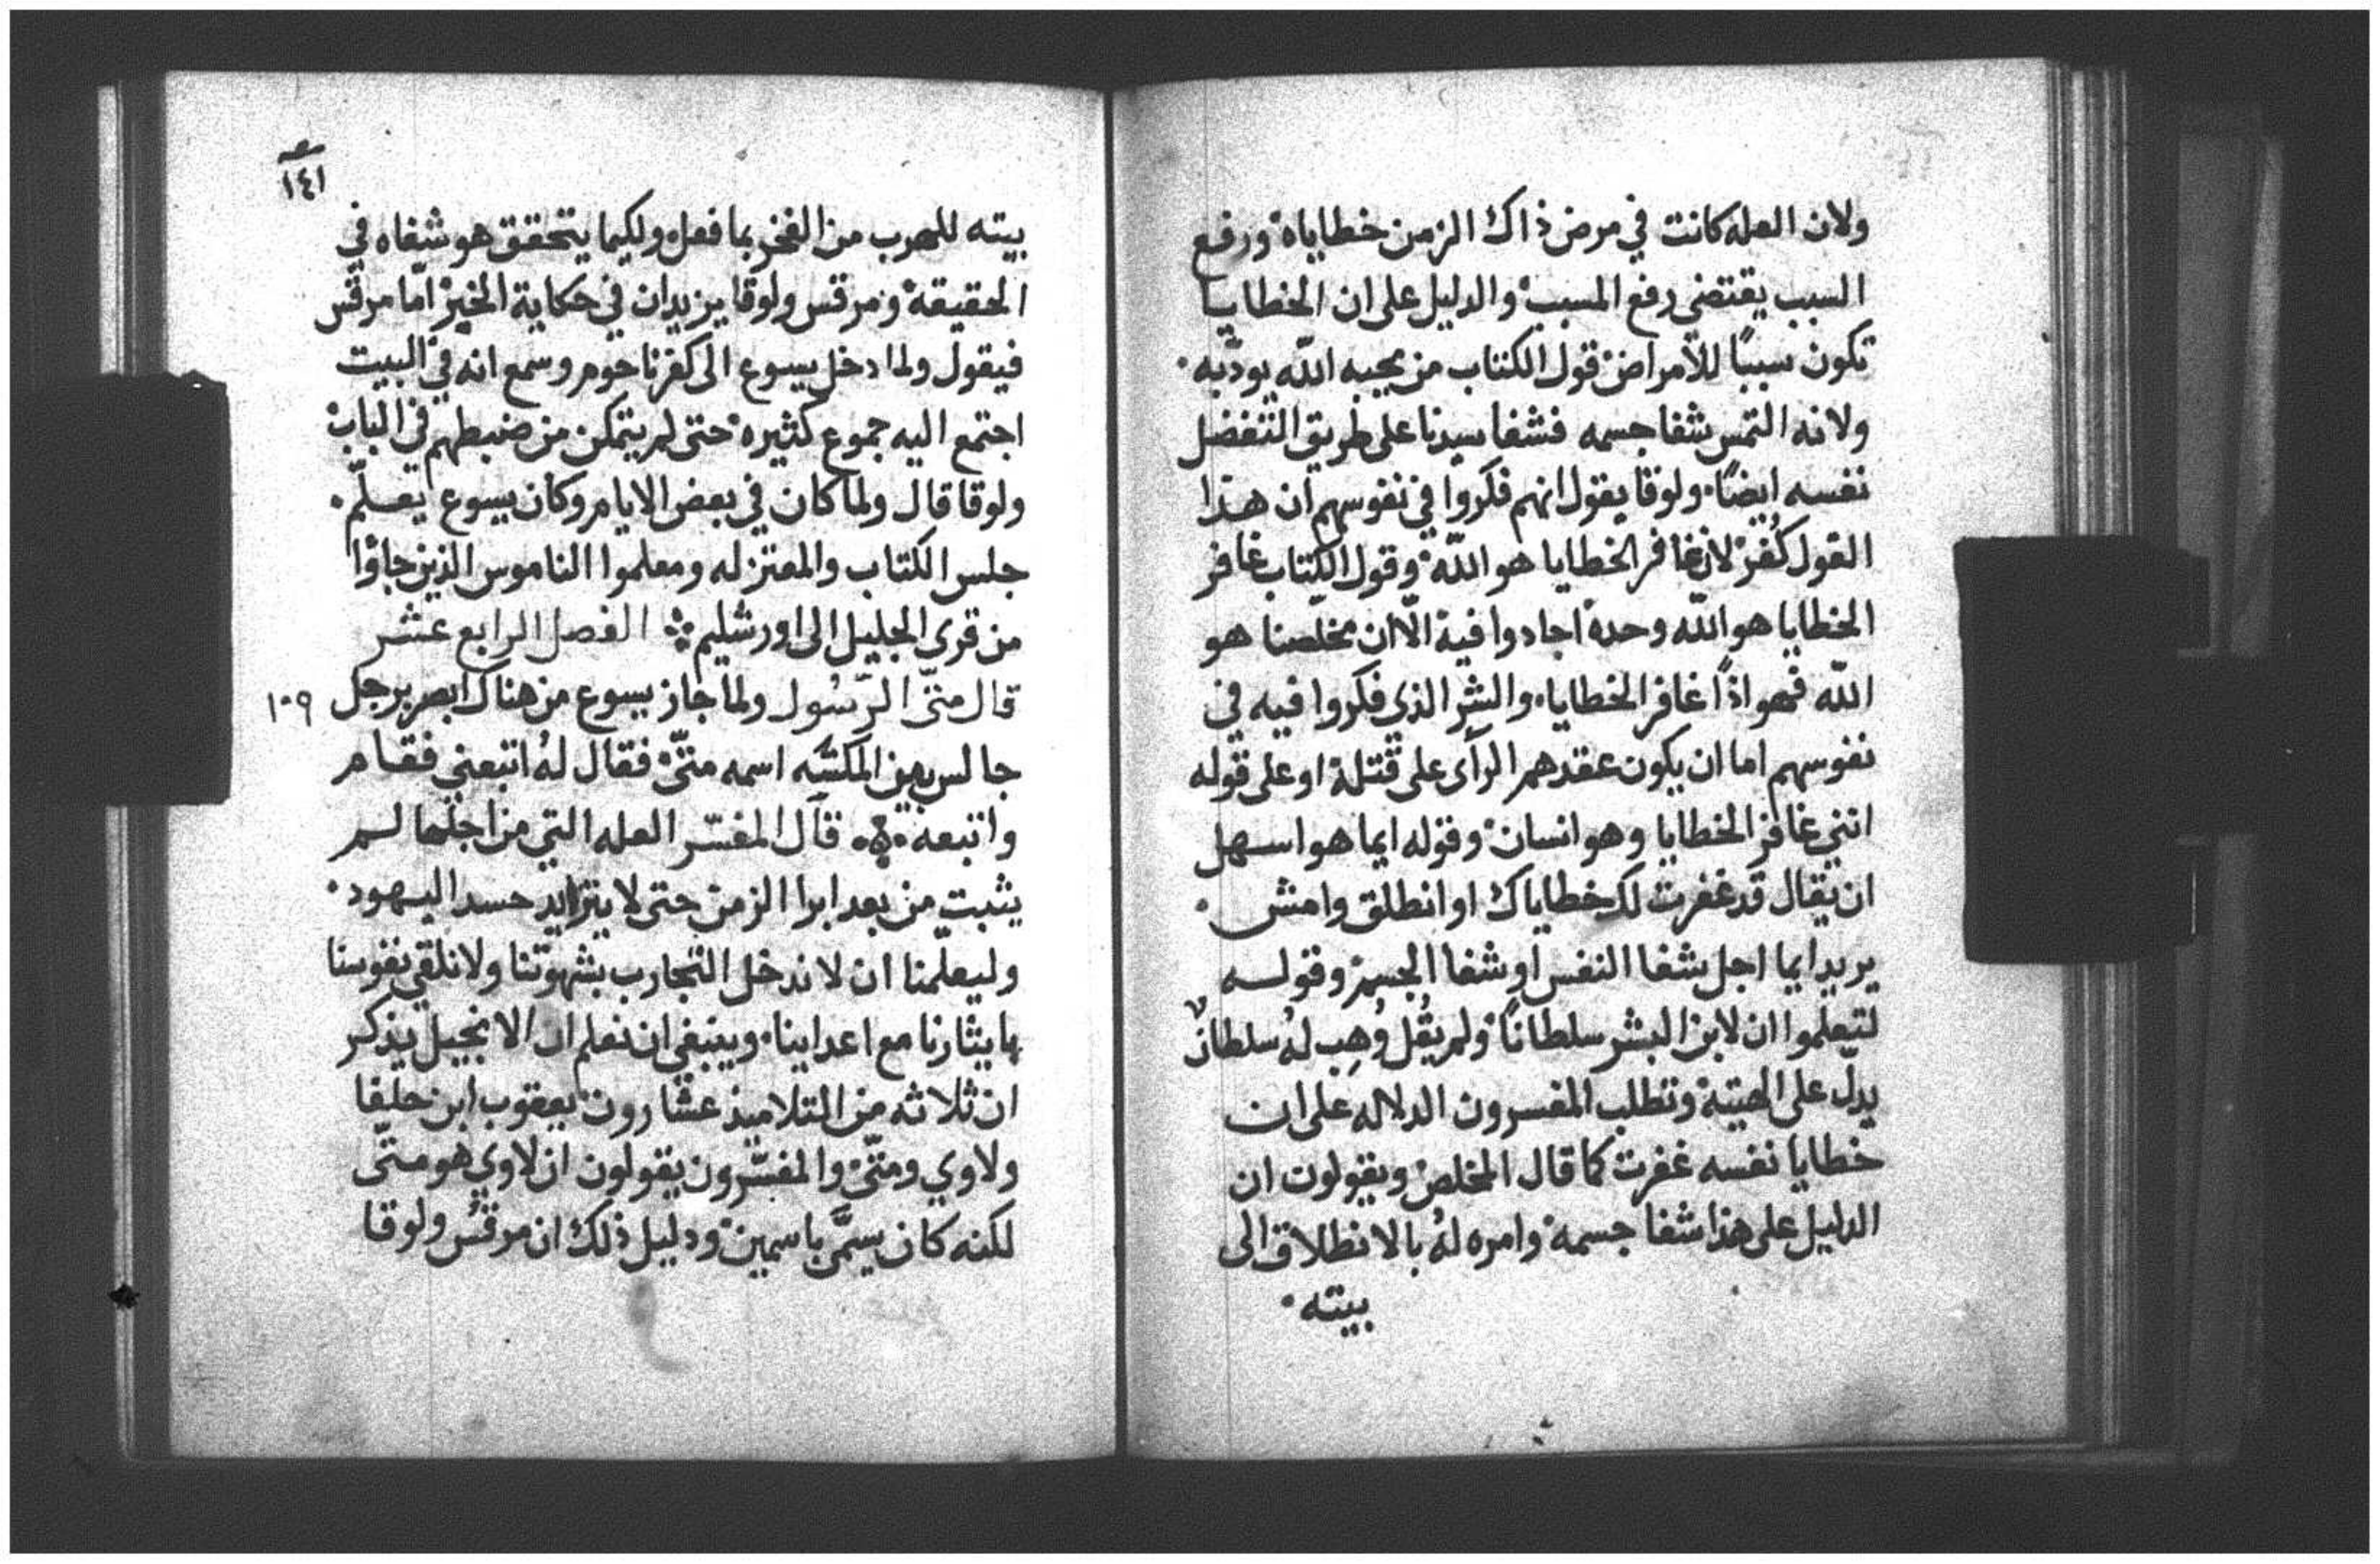 ولان العله كانت في مرض ذاك الزمن خطاياه ورفع
السبب يقتضى رفع المسبب والدليل على ان الخطايا
تكون سببًا للأمراض قول الكتاب من يحبه الله يودّبه.
ولانه التمس شفا جسمه فشفا سيدنا على طريق التفضل
نفسه ايضًا. ولوقا يقول انهم فكروا في نفوسهم ان هذا
القول كُفر لان غافر الخطايا هو الله وقول الكتاب غافر
الخطايا هو الله وحده اجادوا فيه الّا ان مخلصنا هو
الله فهو اذًا غافر الخطايا. والشر الذي فكروا فيه في
نفوسهم اما ان يكون عقدهم الرأى على قتله او على قوله
انني غافر الخطايا وهو انسان وقوله ايما هو اسهل
ان يقال قد غفرت لك خطاياك او انطلق وامش.
يريد ايما اجل شفا النفس او شفا الجسم وقوله
لتعلموا ان لابن البشر سلطانًا ولم يقُل وُهِب لهُ سلطانٌ
يدلّ على الهيته وتطلب المفسرون الدلاله على ان
خطايا نفسه غفرت كما قال المخلص ويقولون ان
الدليل على هذا شفا جسمه وامره لهُ بالانطلاق الى
بيته.
١٤١
بيته للهرب من الفخر بما فعل ولكيما يتحقق هو شفاه في
الحقيقة ومرقس ولوقا يزيدان في حكاية الخبر امّا مرقس
فيقول ولما دخل يسوع الى كفرناحوم وسمع انه في البيت
اجتمع اليه جموع كثيره حتى لم يتمكن من ضبطهم في الباب
ولوقا قال ولما كان في بعض الايام وكان يسوع يعلّم.
جلس الكتاب والمعتزله ومعلموا الناموس الذين جاؤا
من قرى الجليل الى اورشليم الفصل الرابع عشر
قال متّى الرّسُول ولما جاز يسوع من هناك ابصر برجل ١٠٩
جالس بين المكسه اسمه متّى فقال لهُ اتبعني فقام
واتبعه . قال المفسّر العله التي من اجلها لم
يثبت من بعد ابرا الزمن حتى لا يتزايد حسد اليهود.
وليعلّمنا ان لا ندخل التجارب بشهوتنا ولا نلقي نفوسنا
بايثارنا مع اعداينا. وينبغي ان نعلم ان الانجيل يذكر
ان ثلاثه من التلاميذ عشّارون يعقوب ابن حلفا
ولاوي ومتّى والمفسّرون يقولون ان لاوي هو متّى
لكنه كان يسمَّى باسمين ودليل ذلك ان مرقُس ولوقا